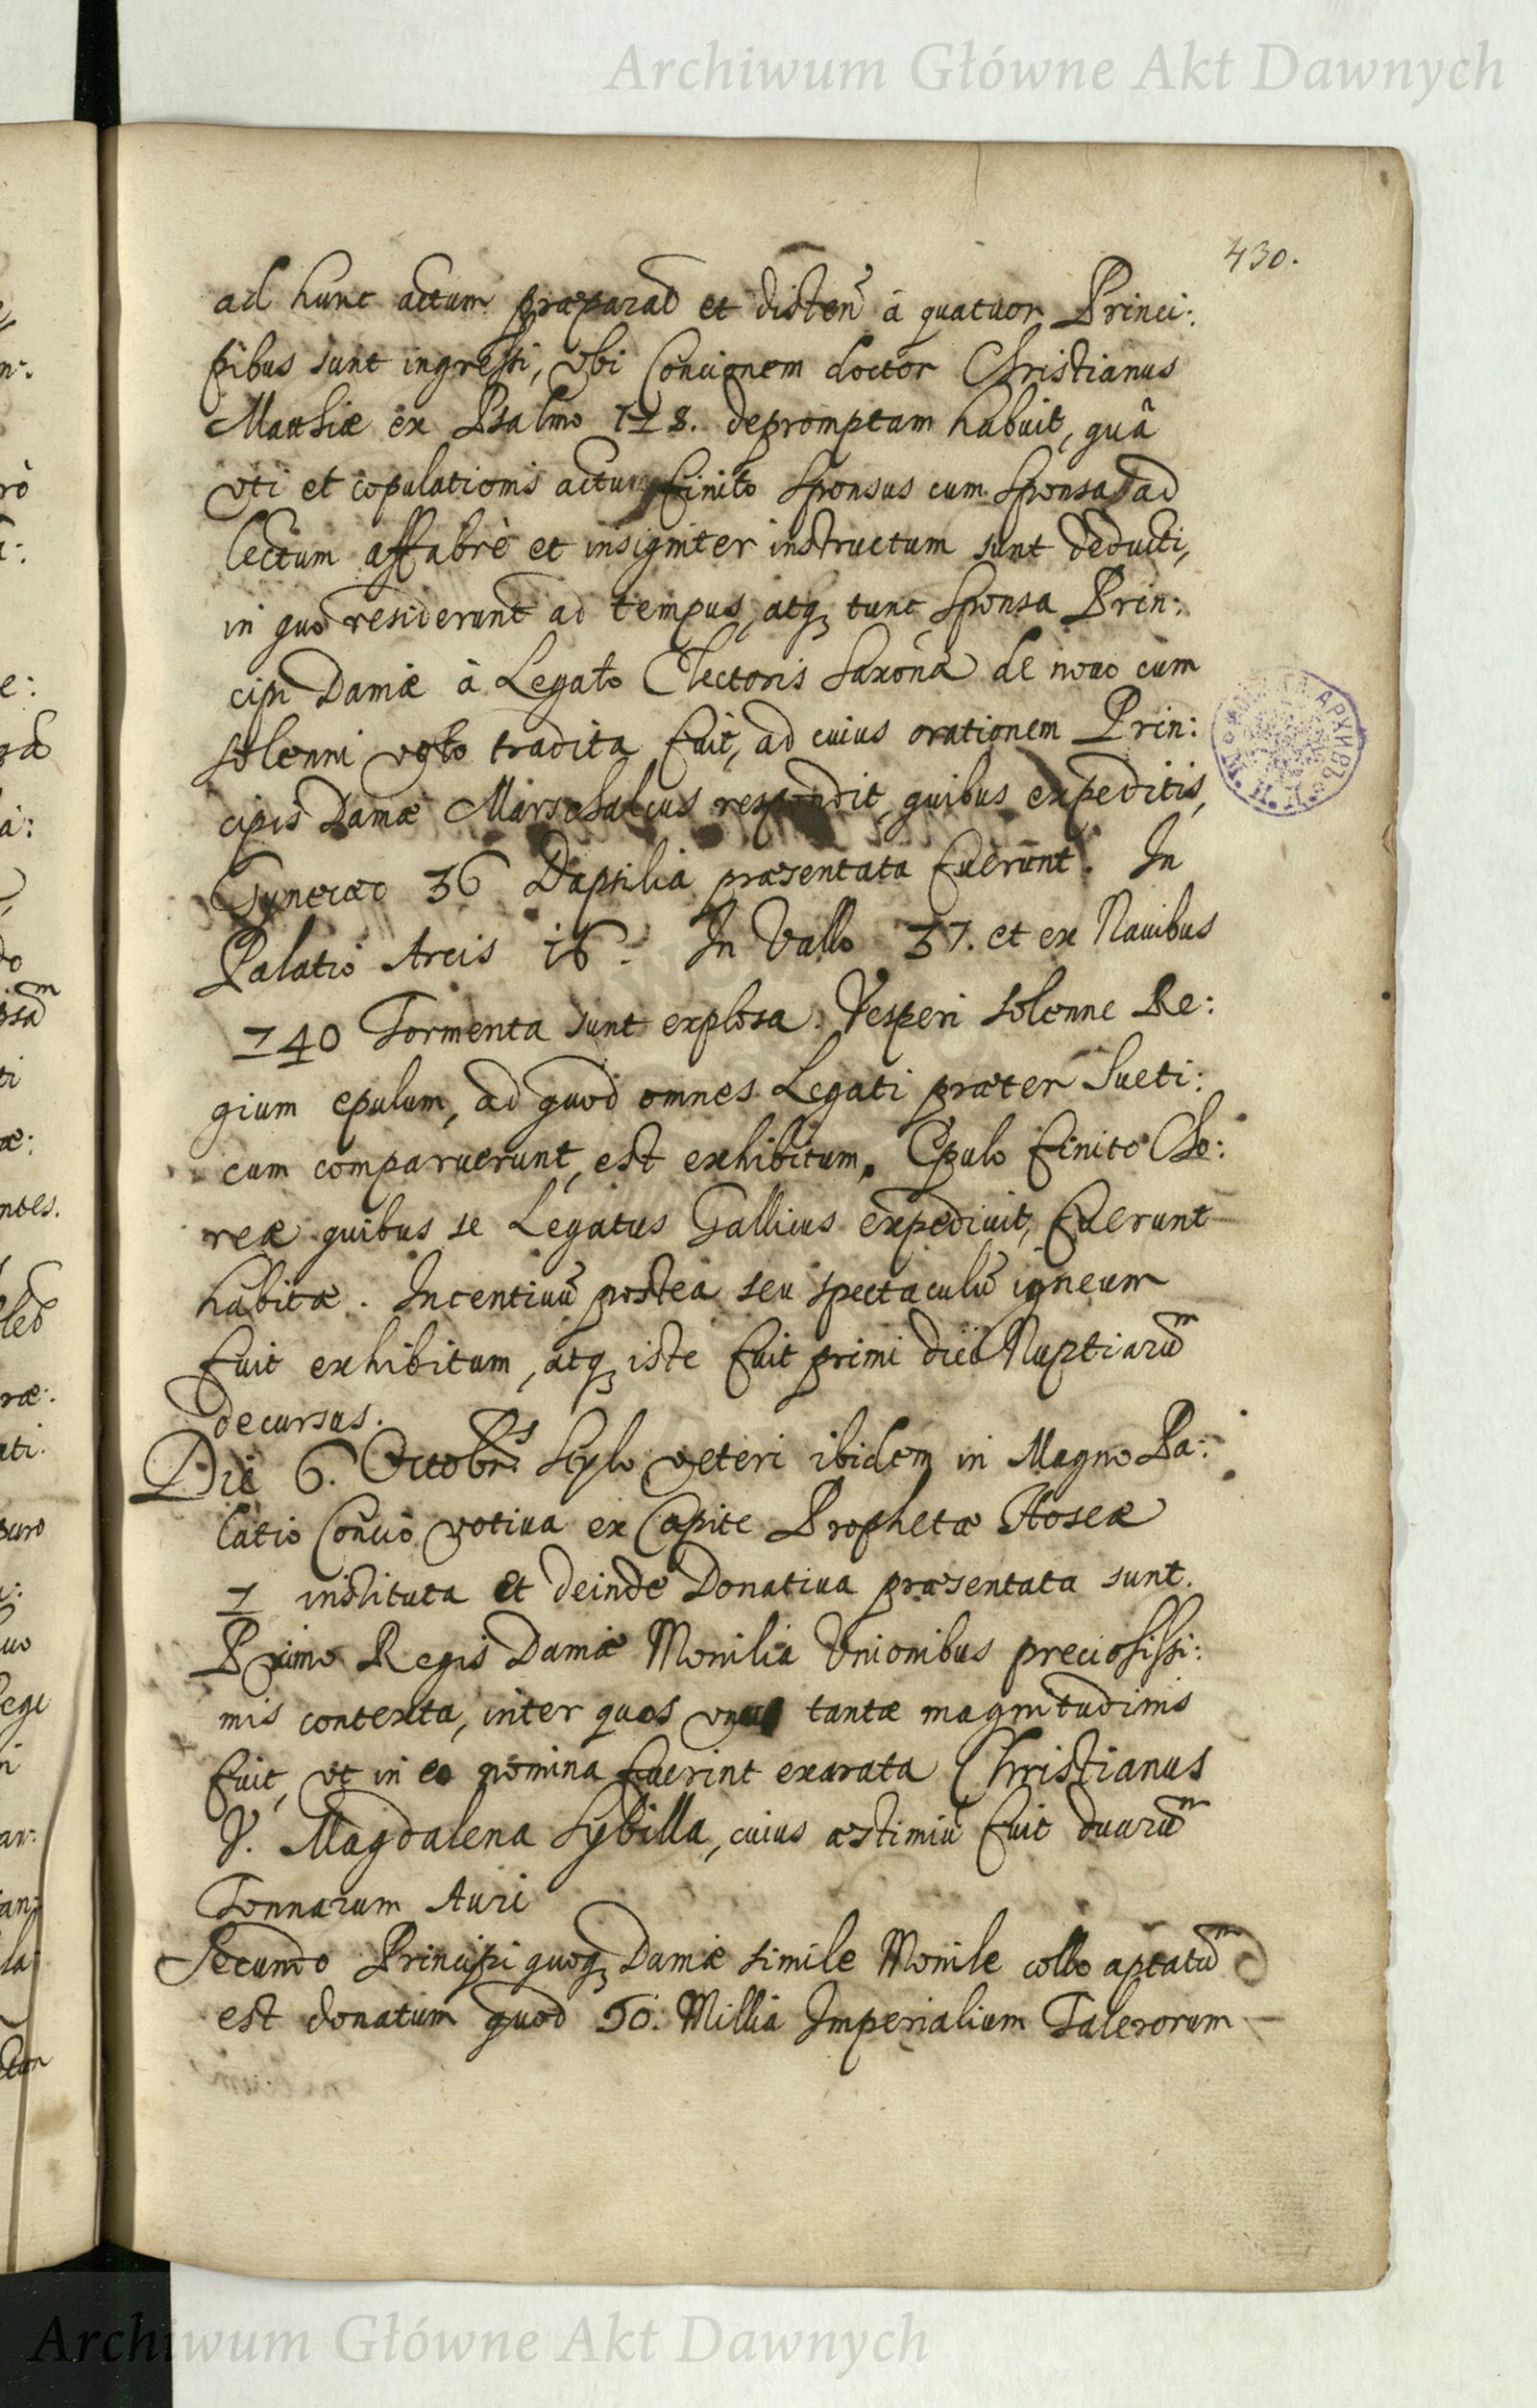 Archiwum Główne Akt Dawnych
430.
ad hunc actum præparatũ et distenũ à quatuor Princi:
pibus sunt ingressi, vbi Concionem doctor Christianus
Matthiæ ex Psalmo 128. depromptam habuit, quâ
vti et copulationis actu finito Sponsus cum Sponsa ad
lectum affabrè et insigniter instructum sunt deducti,
in quo residerunt ad tempus, atq₃ tunc Sponsa Prin:
cipi Daniæ à Legato Electoris Saxoniæ de nouo cum
solenni voto tradita fuit, ad cuius orationem Prin:
cipis Daniæ Marschalcus respondit, quibus expeditis,
36 Dapsilia præsentata fuerunt. In
Palatio Arcis 16. In Vallo 37. et ex Nauibus
140 Tormenta sunt explosa. Vesperi solenne Re:
gium epulum, ad quod omnes Legati præter Sueti:
cum comparuerunt, est exhibitum. Epulo finito Cho:
reæ quibus se Legatus Gallicus expediuit, fuerunt
habitæ. Incentiuũ postea seu spectaculũ igneum
fuit exhibitum, atq₃ iste fuit primi diei Nuptiarũm
decursus.
Die 6. Octobris Stylo veteri ibidem in Magno Pa:
latio Concio votiua ex Capite Prophetæ Hoseæ
1 instituta et deinde Donatiua præsentata sunt.
Primo Regis Daniæ Monilia Vnionibus preciosissi:
mis contexta, inter quos vnus tantæ magnitudinis
fuit, vt in eo nomina fuerint exarata Christianus
V. Magdalena Sybilla, cuius æstimiũ fuit duarũm
Tonnarum Auri
Secundo Principi quoq₃ Daniæ simile Monile collo aptatũm
est donatum quod 50. Millia Imperialium Talerorum
Archiwum Główne Akt Dawnych